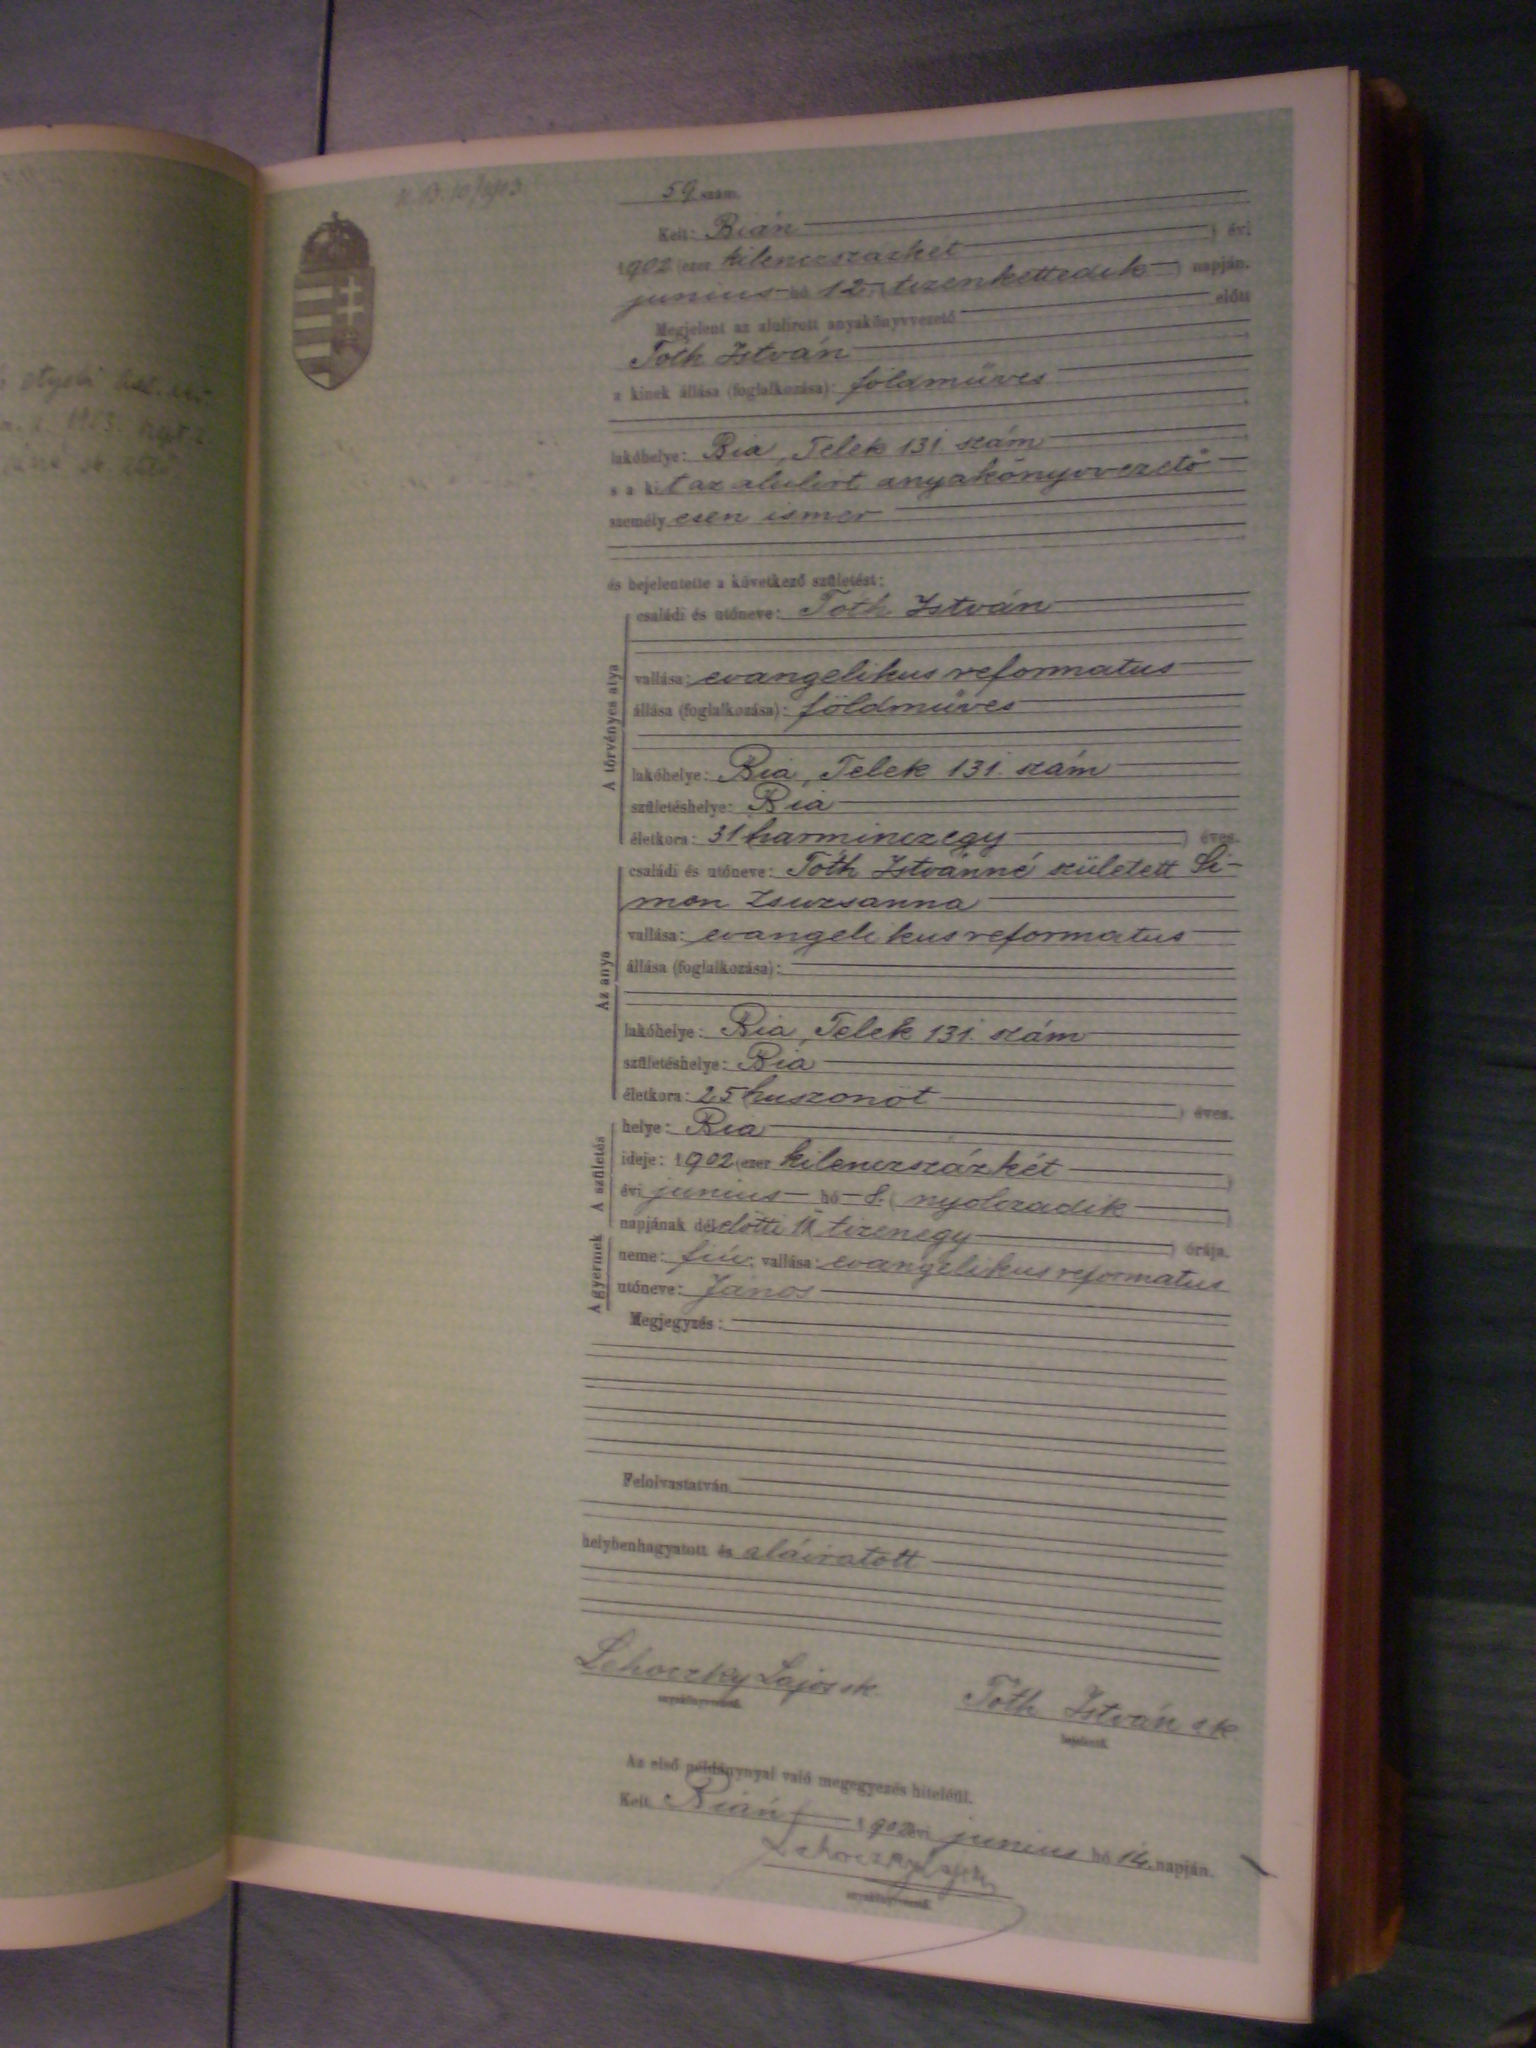 59 szám.
Kelt: Bián
1902 (ezer kilenczszázkét) évi
junius hó 12 (tizenkettedik) napján.
Megjelent az alulirott anyakönyvvezető előtt
Tóth István
a kinek állása (foglalkozása): földmüves
lakóhelye: Bia, Telek 131. szám
s a kit az alulirt anyakönyvvezető
személyesen ismer
és bejelentette a következő születést:
A törvényes atya
családi és utóneve: Tóth István
vallása: evangelikus reformatus
állása (foglalkozása): földmüves
lakóhelye: Bia, Telek 131. szám
születéshelye: Bia
életkora: 31 (harminczegy) éves.
Az anya
családi és utóneve: Tóth Istvánné született Si-
mon Zsuzsanna
vallása: evangelikus reformatus
állása (foglalkozása):
lakóhelye: Bia, Telek 131. szám
születéshelye: Bia
életkora: 25 (huszonöt) éves.
A születés
helye: Bia
ideje: 1902 (ezer kilenczszázkét)
évi junius hó 8. (nyolczadik)
napjának délelőtti 11 (tizenegy) órája.
A gyermek
neme: fiú; vallása: evangelikus reformatus
utóneve: János
Megjegyzés:
Felolvastatván,
helybenhagyatott és aláiratott
Lehoczky Lajos sk. Tóth István sk
anyakönyvvezető. bejelentő.
Az első példánynyal való megegyezés hiteléül.
Kelt Bián 1902 évi junius hó 14. napján.
Lehoczky Lajos
anyakönyvvezető.